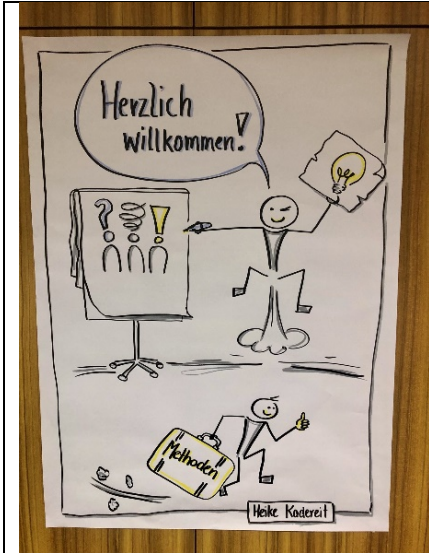 Herzlich
willkommen!
? !
Methoden
Heike Kadereit